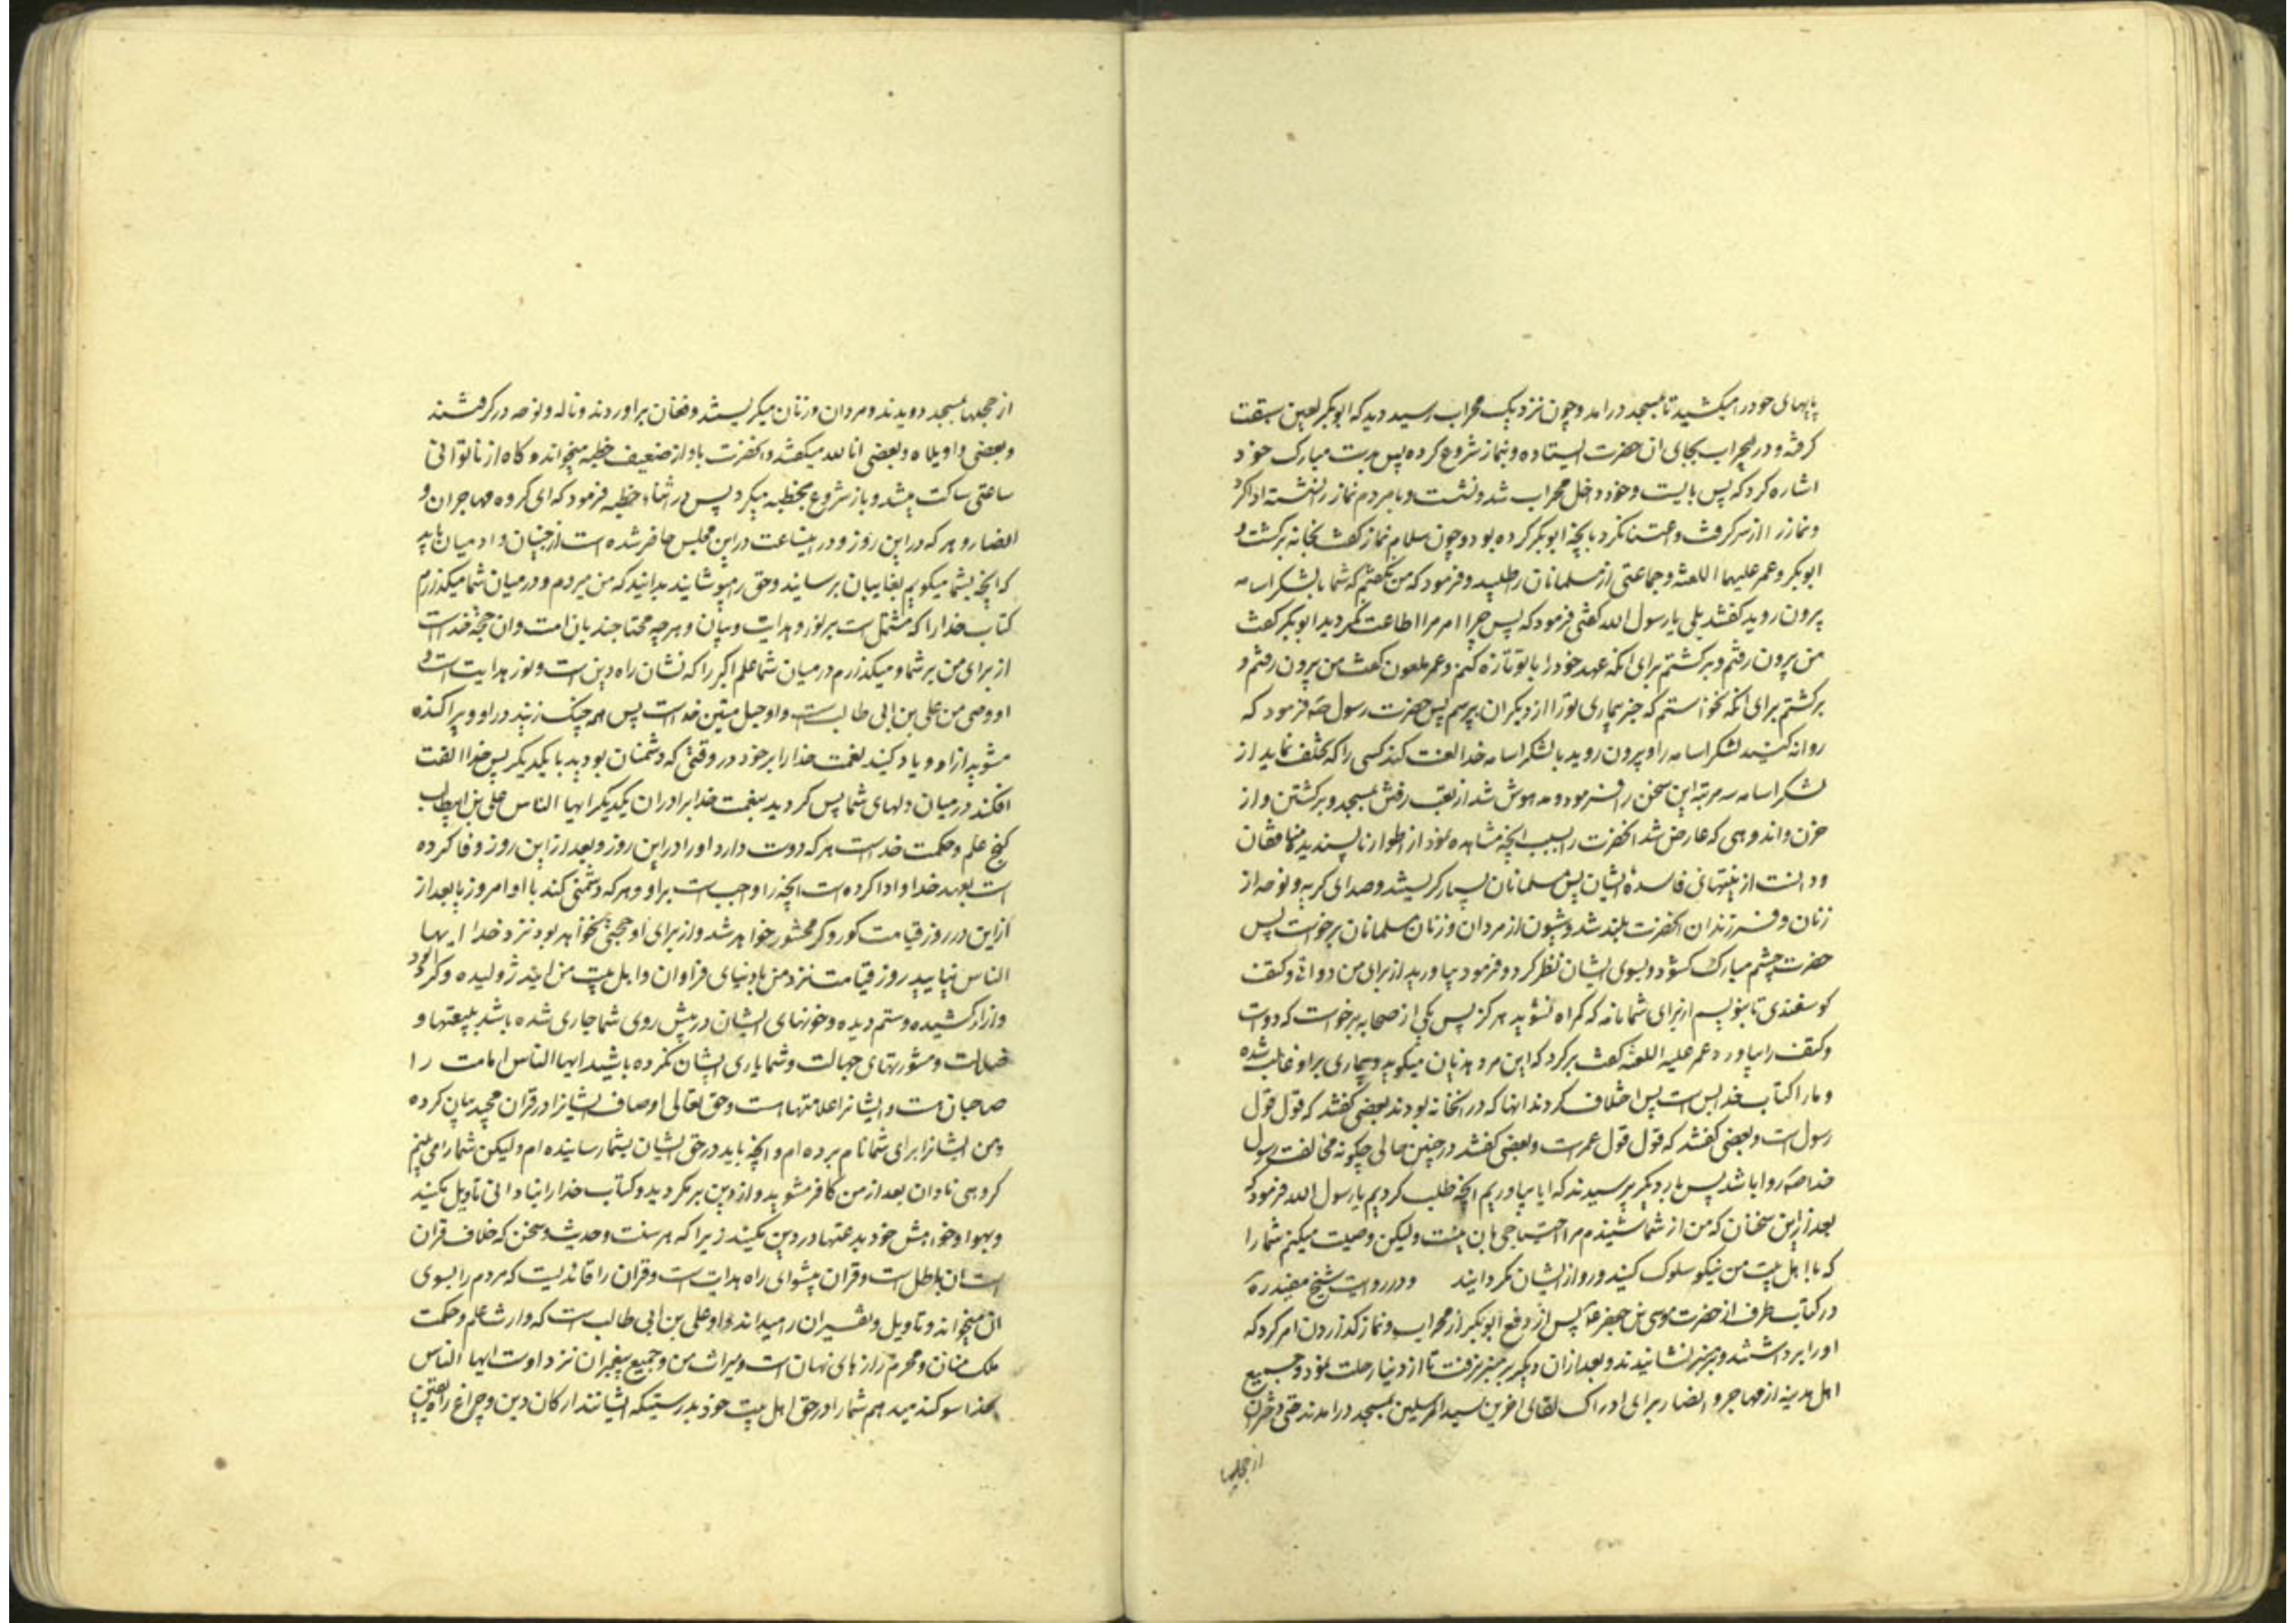 پایهای خود را میکشید تا بمسجد درامد و چون نزدیک محراب رسید دید که ابوبکر لعین سبقت
کرفته و در محراب بجای ان حضرت ایستاده و بنماز شروع کرده پس بدست مبارک خود
اشاره کرد که پس بایست و خود داخل محراب شد و نشست و با مردم نماز را نشسته ادا کرد
و نماز را از سر کرفت و اعتنا نکرد بانچه ابوبکر کرده بود و چون سلام نماز کفت بخانه برکشت و
ابوبکر و عمر علیهما اللعنه و جماعتی از مسلمانان را طلبید و فرمود که من نکفتم که شما با لشکر اسامه
بیرون روید کفتند بلی یا رسول الله کفتی فرمود که پس چرا امر مرا اطاعت نکردید ابوبکر کفت
من بیرون رفتم و برکشتم برای انکه عهد خود را با تو تازه کنم و عمر ملعون کفت من بیرون رفتم و
برکشتم برای انکه نخواستم که خبر بیماری تو را از دیکران بپرسم پس حضرت رسول ص فرمود که
روانه کنید لشکر اسامه را و بیرون روید با لشکر اسامه خدا لعنت کند کسی را که تخلف نماید از
لشکر اسامه سه مرتبه این سخن را فرمود و مدهوش شد از تعب رفتن بمسجد و برکشتن و از
حزن و اندوهی که عارض شد انحضرت را بسبب انچه مشاهده نمود از اطوار ناپسندیده منافقان
و دانست از نیتهای فاسدهٔ ایشان پس مسلمانان بسیار کریستند و صدای کریه و نوحه از
زنان و فرزندان انحضرت بلند شد و شیون از مردان و زنان مسلمانان برخواست پس
حضرت چشم مبارک کشود و بسوی ایشان نظر کرد و فرمود بیاورید از برای من دواتی و کتف
کوسفندی تا بنویسم از برای شما نامه که کمراه نشوید هرکز پس یکی از صحابه برخواست که دوات
و کتف را بیاورد عمر علیه اللعنه کفت برکرد که این مرد هذیان میکوید و بیماری بر او غالب شده
و ما را کتاب خدا بس است پس اختلاف کردند انها که در انخانه بودند بعضی کفتند که قول قول
رسول است و بعضی کفتند که قول قول عمر است و بعضی کفتند در چنین حالی چکونه مخالفت رسول
خدا ص روا باشد پس بار دیکر پرسیدند که ایا بیاوریم انچه طلب کردیم یا رسول الله فرمود که
بعد از این سخنان که من از شما شنیدم مرا احتیاجی بان نیست ولیکن وصیت میکنم شما را
که با اهل بیت من نیکو سلوک کنید و رو از ایشان نکردانید و در روایت شیخ مفید ره
در کتاب طرف از حضرت موسی بن جعفر ع پس از دفع ابوبکر از محراب و نماز کذاردن امر کرد که
او را برداشتند و بر منبر نشانیدند و بعد از ان دیکر بر منبر نرفت تا از دنیا رحلت نمود و جمیع
اهل مدینه از مهاجر و انصار برای ادراک لقای اخرین سید المرسلین بمسجد درامدند حتی دختران
از حجلها
از حجلها بمسجد دویدند و مردان و زنان میکریستند و فغان براوردند و ناله و نوحه درکرفتند
و بعضی واویلاه و بعضی انا لله میکفتند و انحضرت باواز ضعیف خطبه میخواند و کاه از ناتوانی
ساعتی ساکت میشد و باز شروع بخطبه میکرد پس در اثناء خطبه فرمود که ای کروه مهاجران و
انصار و هر که در این روز و در اینساعت در این مجلس حاضر شده است از جنیان و ادمیان باید
که انچه بشما میکویم بغایبان برسانند و حق را مپوشانید بدانید که من میروم و در میان شما میکذرم
کتاب خدا را که مشتمل است بر نور و هدایت و بیان و هرچه محتاجند بان امت و ان حجة خداست
از برای من بر شما و میکذرم در میان شما علم اکبر را که نشان راه دین است و نور هدایت است و
او وصی من علی بن ابی طالب است و او حبل متین خداست پس همه چنک زنید در او و پراکنده
مشوید از او و یاد کنید نعمت خدا را بر خود در وقتی که دشمنان بودید با یکدیکر پس خدا الفت
افکند در میان دلهای شما پس کردید بنعمت خدا برادران یکدیکر ایها الناس علی بن ابیطالب
کنج علم و حکمت خداست هر که دوست دارد او را در این روز و بعد از این روز وفا کرده
است بعهد خدا و ادا کرده است انچه را واجب است بر او و هر که دشمنی کند با او امروز یا بعد از
از این در روز قیامت کور و کر محشور خواهد شد و از برای او حجتی نخواهد بود نزد خدا ایها
الناس نیایید روز قیامت نزد من با دنیای فراوان و اهل بیت من ایند ژولیده و کرد الود
و ازار کشیده و ستم دیده و خونهای ایشان در پیش روی شما جاری شده باشد ببیعتها و
ضلالت و مشورتهای جهالت و شما یاری ایشان نکرده باشید ایها الناس امامت را
صاحبان هست و ایشانرا علامتها است و حق تعالی اوصاف ایشانرا در قران مجید بیان کرده
و من ایشانرا برای شما نام برده ام و انچه باید در حق ایشان بشما رسانیده ام ولیکن شما را می بینم
کروهی نادان بعد از من کافر مشوید و از دین برمکردید و کتاب خدا را بنادانی تاویل مکنید
و بهوا و خواهش خود بدعتها در دین مکنید زیرا که هر سنت و حدیث و سخن که خلاف قران
است ان باطل است و قران پیشوای راه هدایت است و قران را قائدیست که مردم را بسوی
ان میخواند و تاویل و تفسیر ان را میداند و او علی بن ابی طالب است که وارث علم و حکمت
ملک منان و محرم رازهای نهان است و میراث من و جمیع پیغمبران نزد اوست ایها الناس
بخدا سوکند میدهم شما را در حق اهل بیت خود بدرستیکه ایشانند ارکان دین و چراغ راه یقین